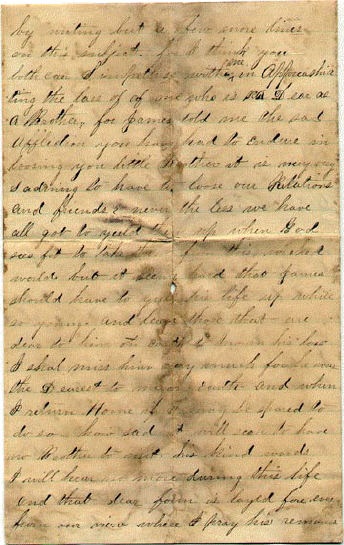 by writing but a few more lines
on this subject for I think you
both can I sympathise with me in Appreciating
ting the loss of of one who is so Dear as
A Brother, for James told me the sad
Affliction you have had to endure in
loosing you little Brother it is very very
sadning to have to loose our Relations
and friends never the less we have
all got to yeild up when God
sees fit to take from this wicked
world but it seems hard that James
should have to yeild his life up while
so young and leave those that are
dear to him on earth to his loss
I shal miss him very much for he was
the Dearest to me on earth and when
I return Home if I may be spared to
do so how sad it will be to have
no Brother to meet his kind words
I will hear no more during this life
And that dear form is layed for ever
from our view where I pray his remains